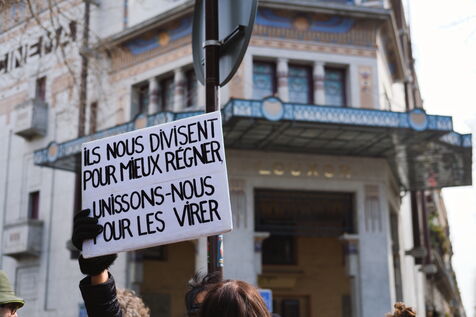 CINEMA
LOUXOR
ILS NOUS DIVISENT
POUR MIEUX RÉGNER
UNISSONS-NOUS
POUR LES VIRER